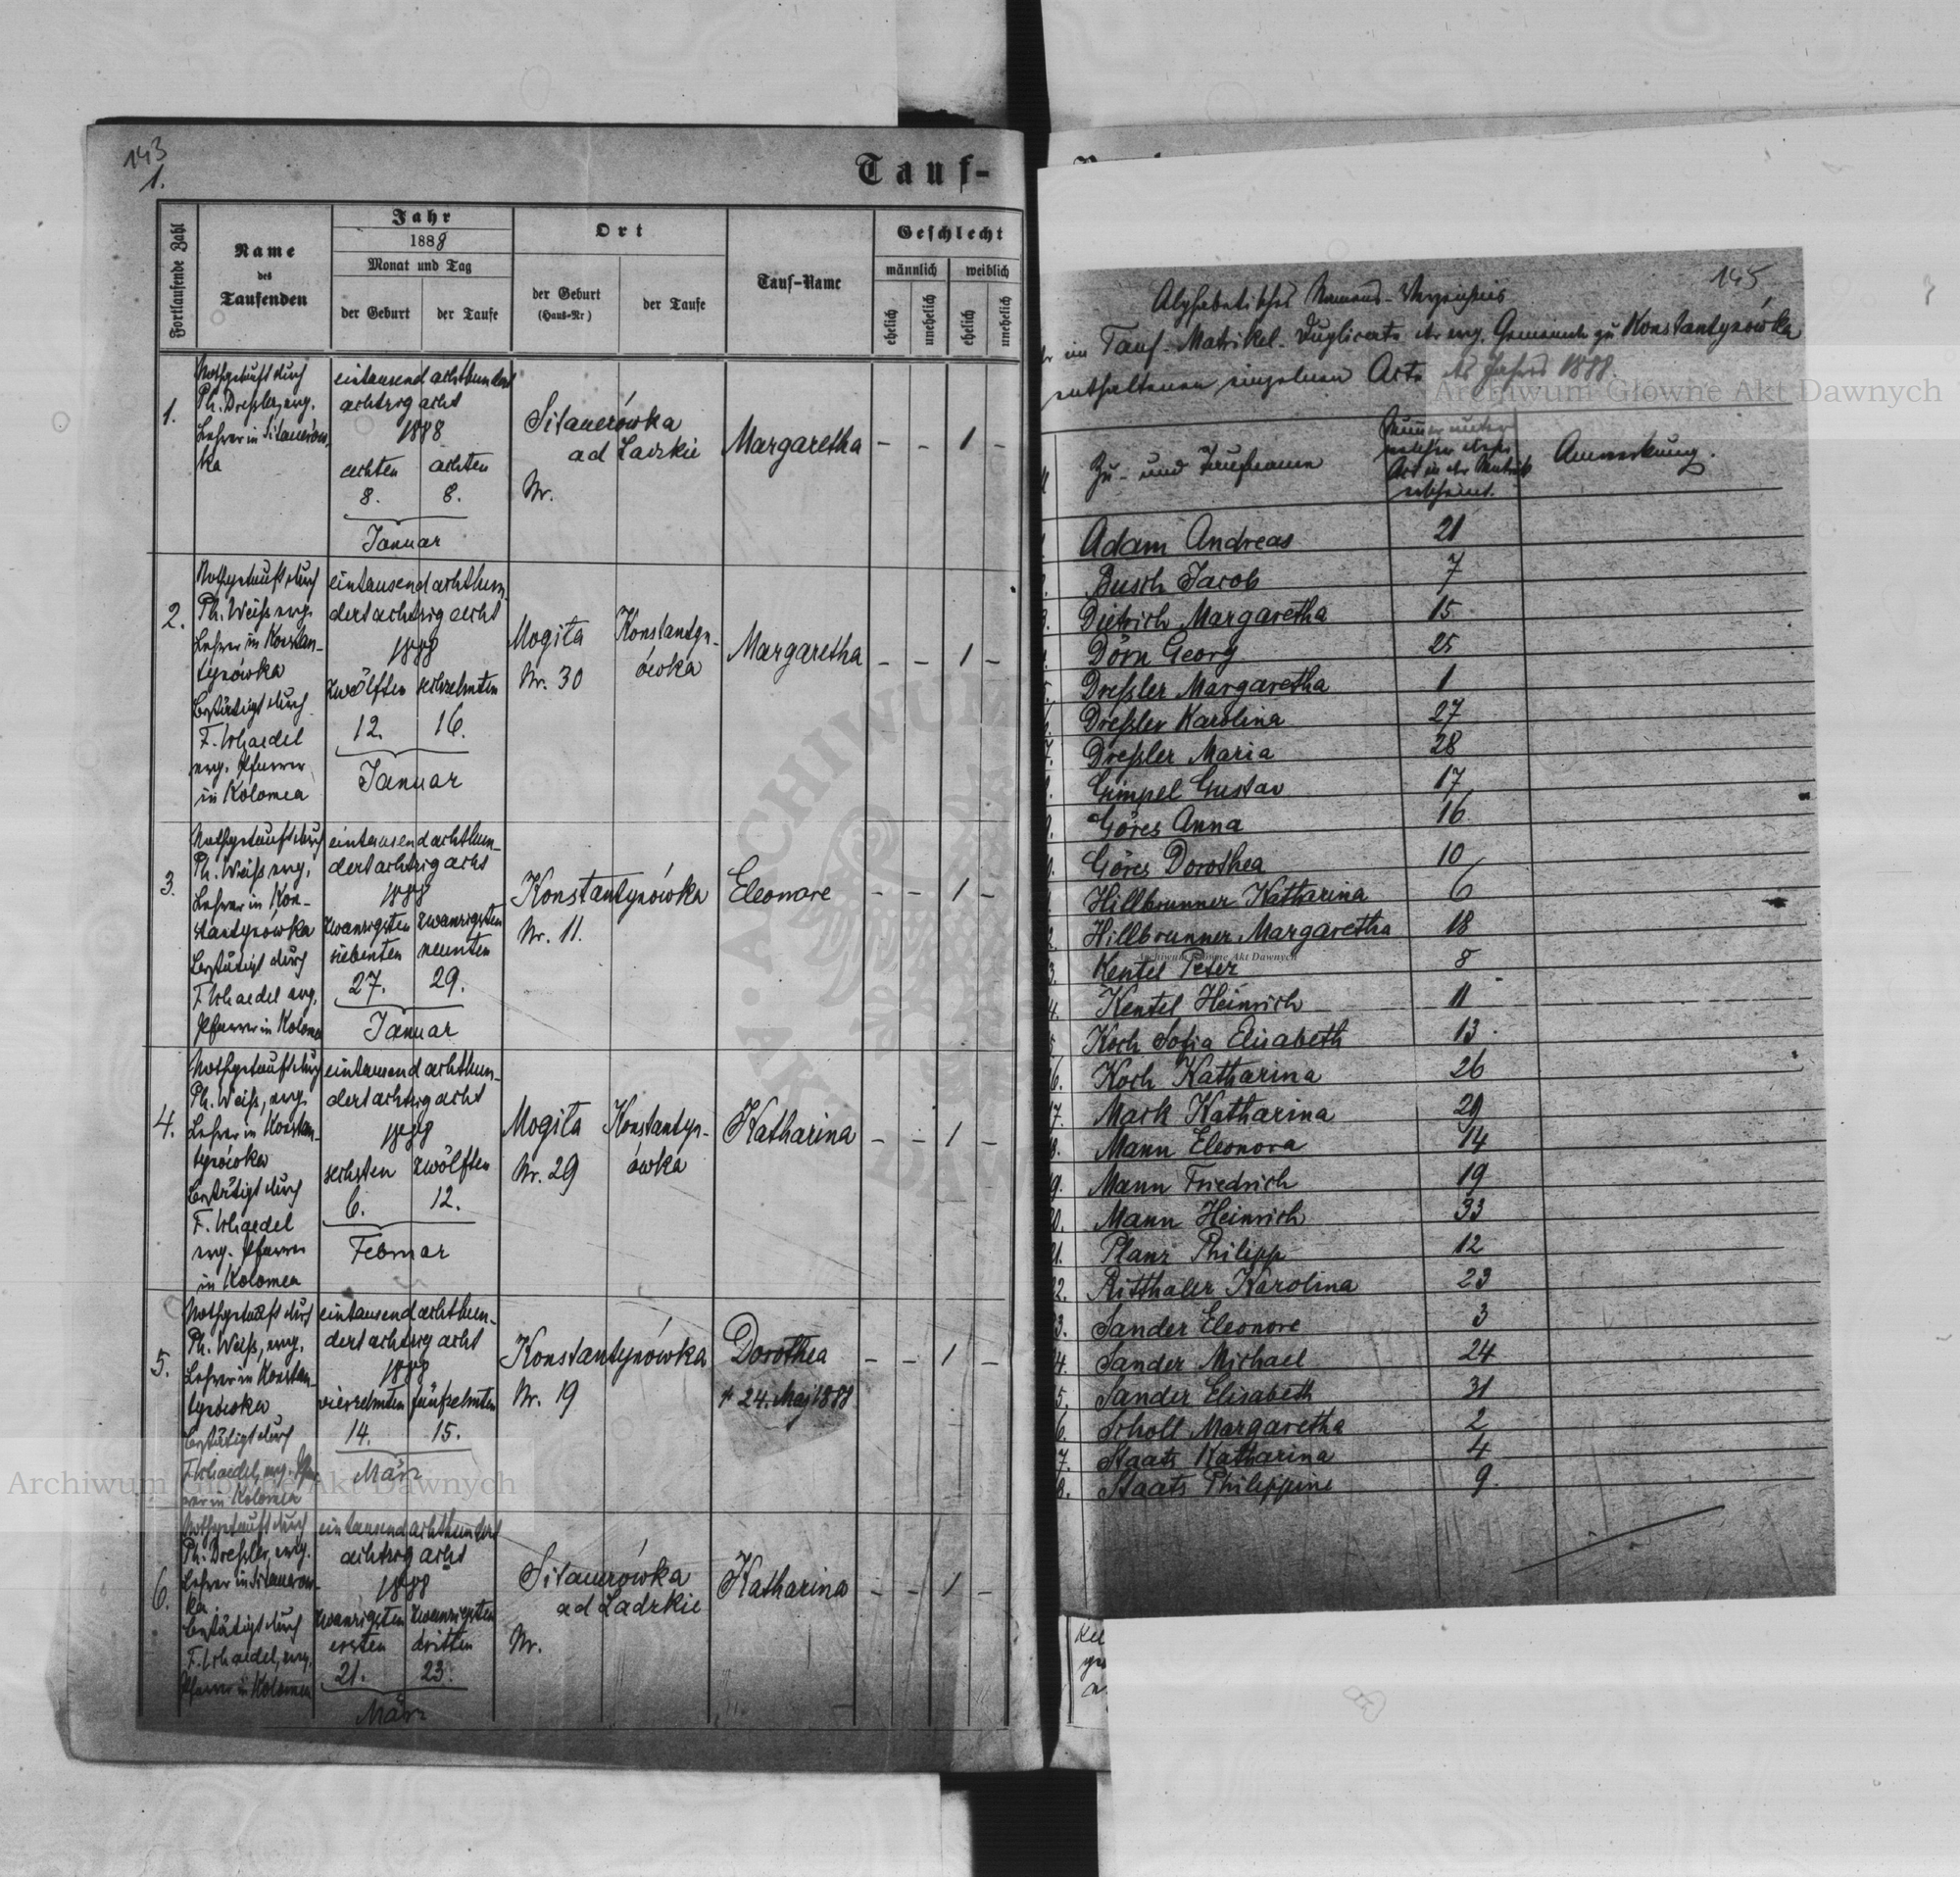 143
1.
Tauf-
Fortlaufende Zahl
Name
des
Taufenden
Jahr
1888
Monat und Tag
der Geburt
der Taufe
Ort
der Geburt
(Haus-Nr)
der Taufe
Tauf-Name
Geschlecht
männlich
weiblich
ehelich
unehelich
ehelich
unehelich
1.
Nothgetauft durch
Ph. Dreßler, evg.
Lehrer in Sitauerów-
ka
eintausend achthundert
achtzig acht
1888
achten achten
8. 8.
Januar
Sitauerówka
ad Ladzkie
Nr.
Margaretha
- - 1 -
2.
Nothgetauft durch
Ph. Weiß evg.
Lehrer in Konstan-
tynówka
bestätigt durch
F. Schaedel
evg. Pfarrer
in Kolomea
eintausend achthun-
dert achtzig acht
1888
zwölften sechzehnten
12. 16.
Januar
Mogiła
Nr. 30
Konstantyn-
ówka
Margaretha
- - 1 -
3.
Nothgetauft durch
Ph. Weiß evg.
Lehrer in Kon-
stantynówka
bestätigt durch
F. Schaedel evg.
Pfarrer in Kolomea
eintausend achthun-
dert achtzig acht
1888
zwanzigsten zwanzigsten
siebenten neunten
27. 29.
Januar
Konstantynówka
Nr. 11.
Eleonore
- - 1 -
4.
Nothgetauft durch
Ph. Weiß, evg.
Lehrer in Konstan-
tynówka
bestätigt durch
F. Schaedel
evg. Pfarrer
in Kolomea
eintausend achthun-
dert achtzig acht
1888
sechsten zwölften
6. 12.
Februar
Mogiła
Nr. 29
Konstantyn-
ówka
Katharina
- - 1 -
5.
Nothgetauft durch
Ph. Weiß, evg.
Lehrer in Konstan-
tynówka
bestätigt durch
F. Schaedel, evg. Pfar-
rer in Kolomea
eintausend achthun-
dert achtzig acht
1888
vierzehnten fünfzehnten
14. 15.
März
Konstantynówka
Nr. 19
Dorothea
† 24. Maj 1888
- - 1 -
6.
Nothgetauft durch
Ph. Dreßler, evg.
Lehrer in Sitauerów-
ka
bestätigt durch
F. Schaedel, evg.
Pfarrer in Kolomea
eintausend achthundert
achtzig acht
1888
zwanzigsten zwanzigsten
ersten dritten
21. 23.
März
Sitauerówka
ad Ladzkie
Nr.
Katharina
- - 1 -
145
Alphabetisches Namens-Verzeichnis
im Tauf-Matrikel-Duplicate der evg. Gemeinde zu Konstantynówka
enthaltenen einzelnen Acte des Jahres 1888.
Zu- und Taufname
Nummer unter
welcher dieser
Act in der Matrik
erscheint.
Anmerkung.
Adam Andreas 21
Busch Jacob 7
Dietrich Margaretha 15
Dörn Georg 25
Dreßler Margaretha 1
Dreßler Karolina 27
Dreßler Maria 28
Gimpel Gustav 17
Göres Anna 16
Göres Dorothea 10
Hillbrunner Katharina 6
Hillbrunner Margaretha 18
Kentel Peter 8
Kentel Heinrich 11
Koch Sofia Elisabeth 13
Koch Katharina 26
Mark Katharina 29
Mann Eleonora 14
Mann Friedrich 19
Mann Heinrich 33
Planz Philipp 12
Ritthaler Karolina 23
Sander Eleonore 3
Sander Michael 24
Sander Elisabeth 31
Scholl Margaretha 2
Staats Katharina 4
Staats Philippine 9.
Archiwum Główne Akt Dawnych
Archiwum Główne Akt Dawnych
Archiwum Główne Akt Dawnych